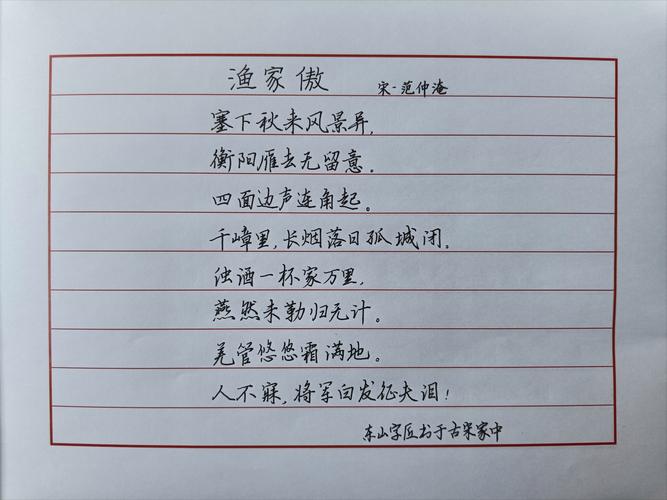 渔家傲 宋·范仲淹
塞下秋来风景异,
衡阳雁去无留意.
四面边声连角起。
千嶂里,长烟落日孤城闭。
浊酒一杯家万里,
燕然未勒归无计。
羌管悠悠霜满地。
人不寐,将军白发征夫泪!
东山字匠书于古宋家中